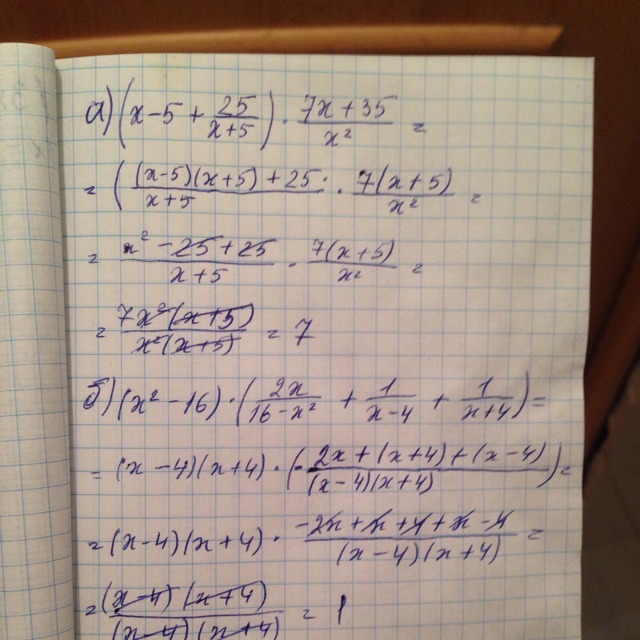 а) (x-5 + 25/(x+5)) · (7x+35)/x² =
= ((x-5)(x+5) + 25)/(x+5) · 7(x+5)/x² =
= (x² - 25 + 25)/(x+5) · 7(x+5)/x² =
= 7x²(x+5)/x²(x+5) = 7
б) (x² - 16) · (2x/(16-x²) + 1/(x-4) + 1/(x+4)) =
= (x-4)(x+4) · (-2x + (x+4) + (x-4))/((x-4)(x+4)) =
= (x-4)(x+4) · (-2x + x + 4 + x - 4)/((x-4)(x+4)) =
= (x-4)(x+4)/(x-4)(x+4) = 1